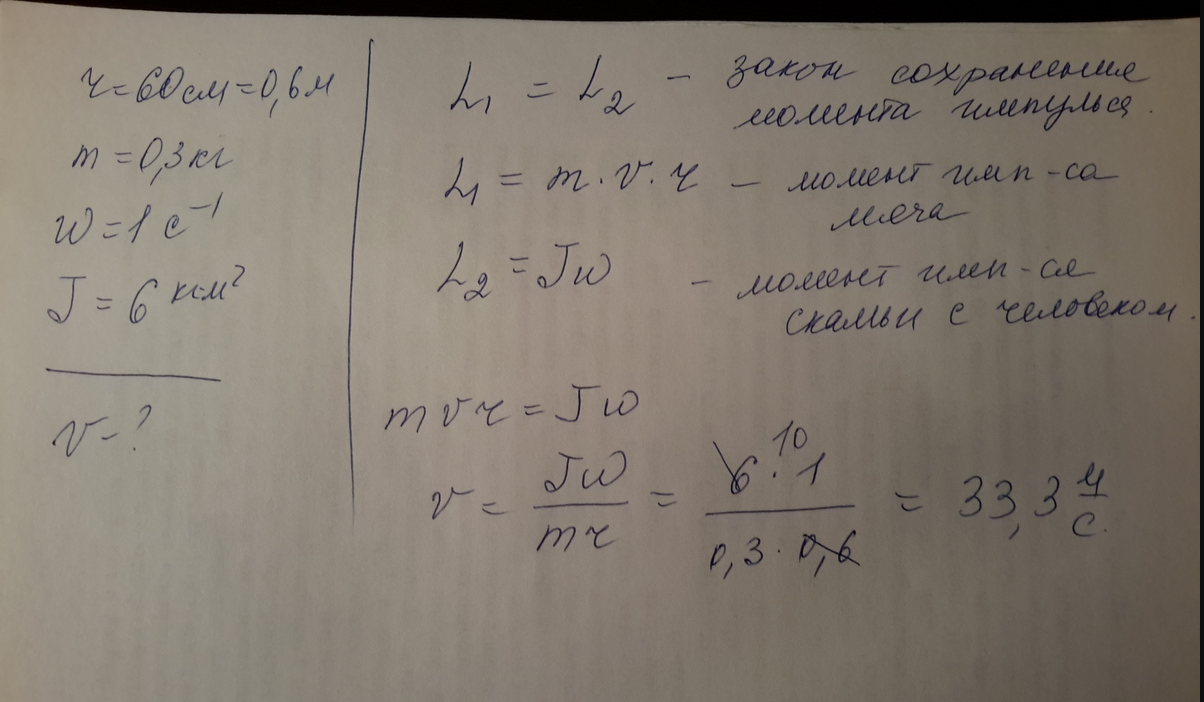 r=60см=0,6м
m=0,3кг
ω=1 с⁻¹
J=6 кг·м²
v-?
L₁ = L₂ - закон сохранения
момента импульса.
L₁ = m·v·r - момент имп-са
мяча
L₂ = Jω - момент имп-ся
скамьи с человеком.
mvr = Jω
v = Jω/mr = 6·1/0,3·0,6 = 33,3 м/с.
10